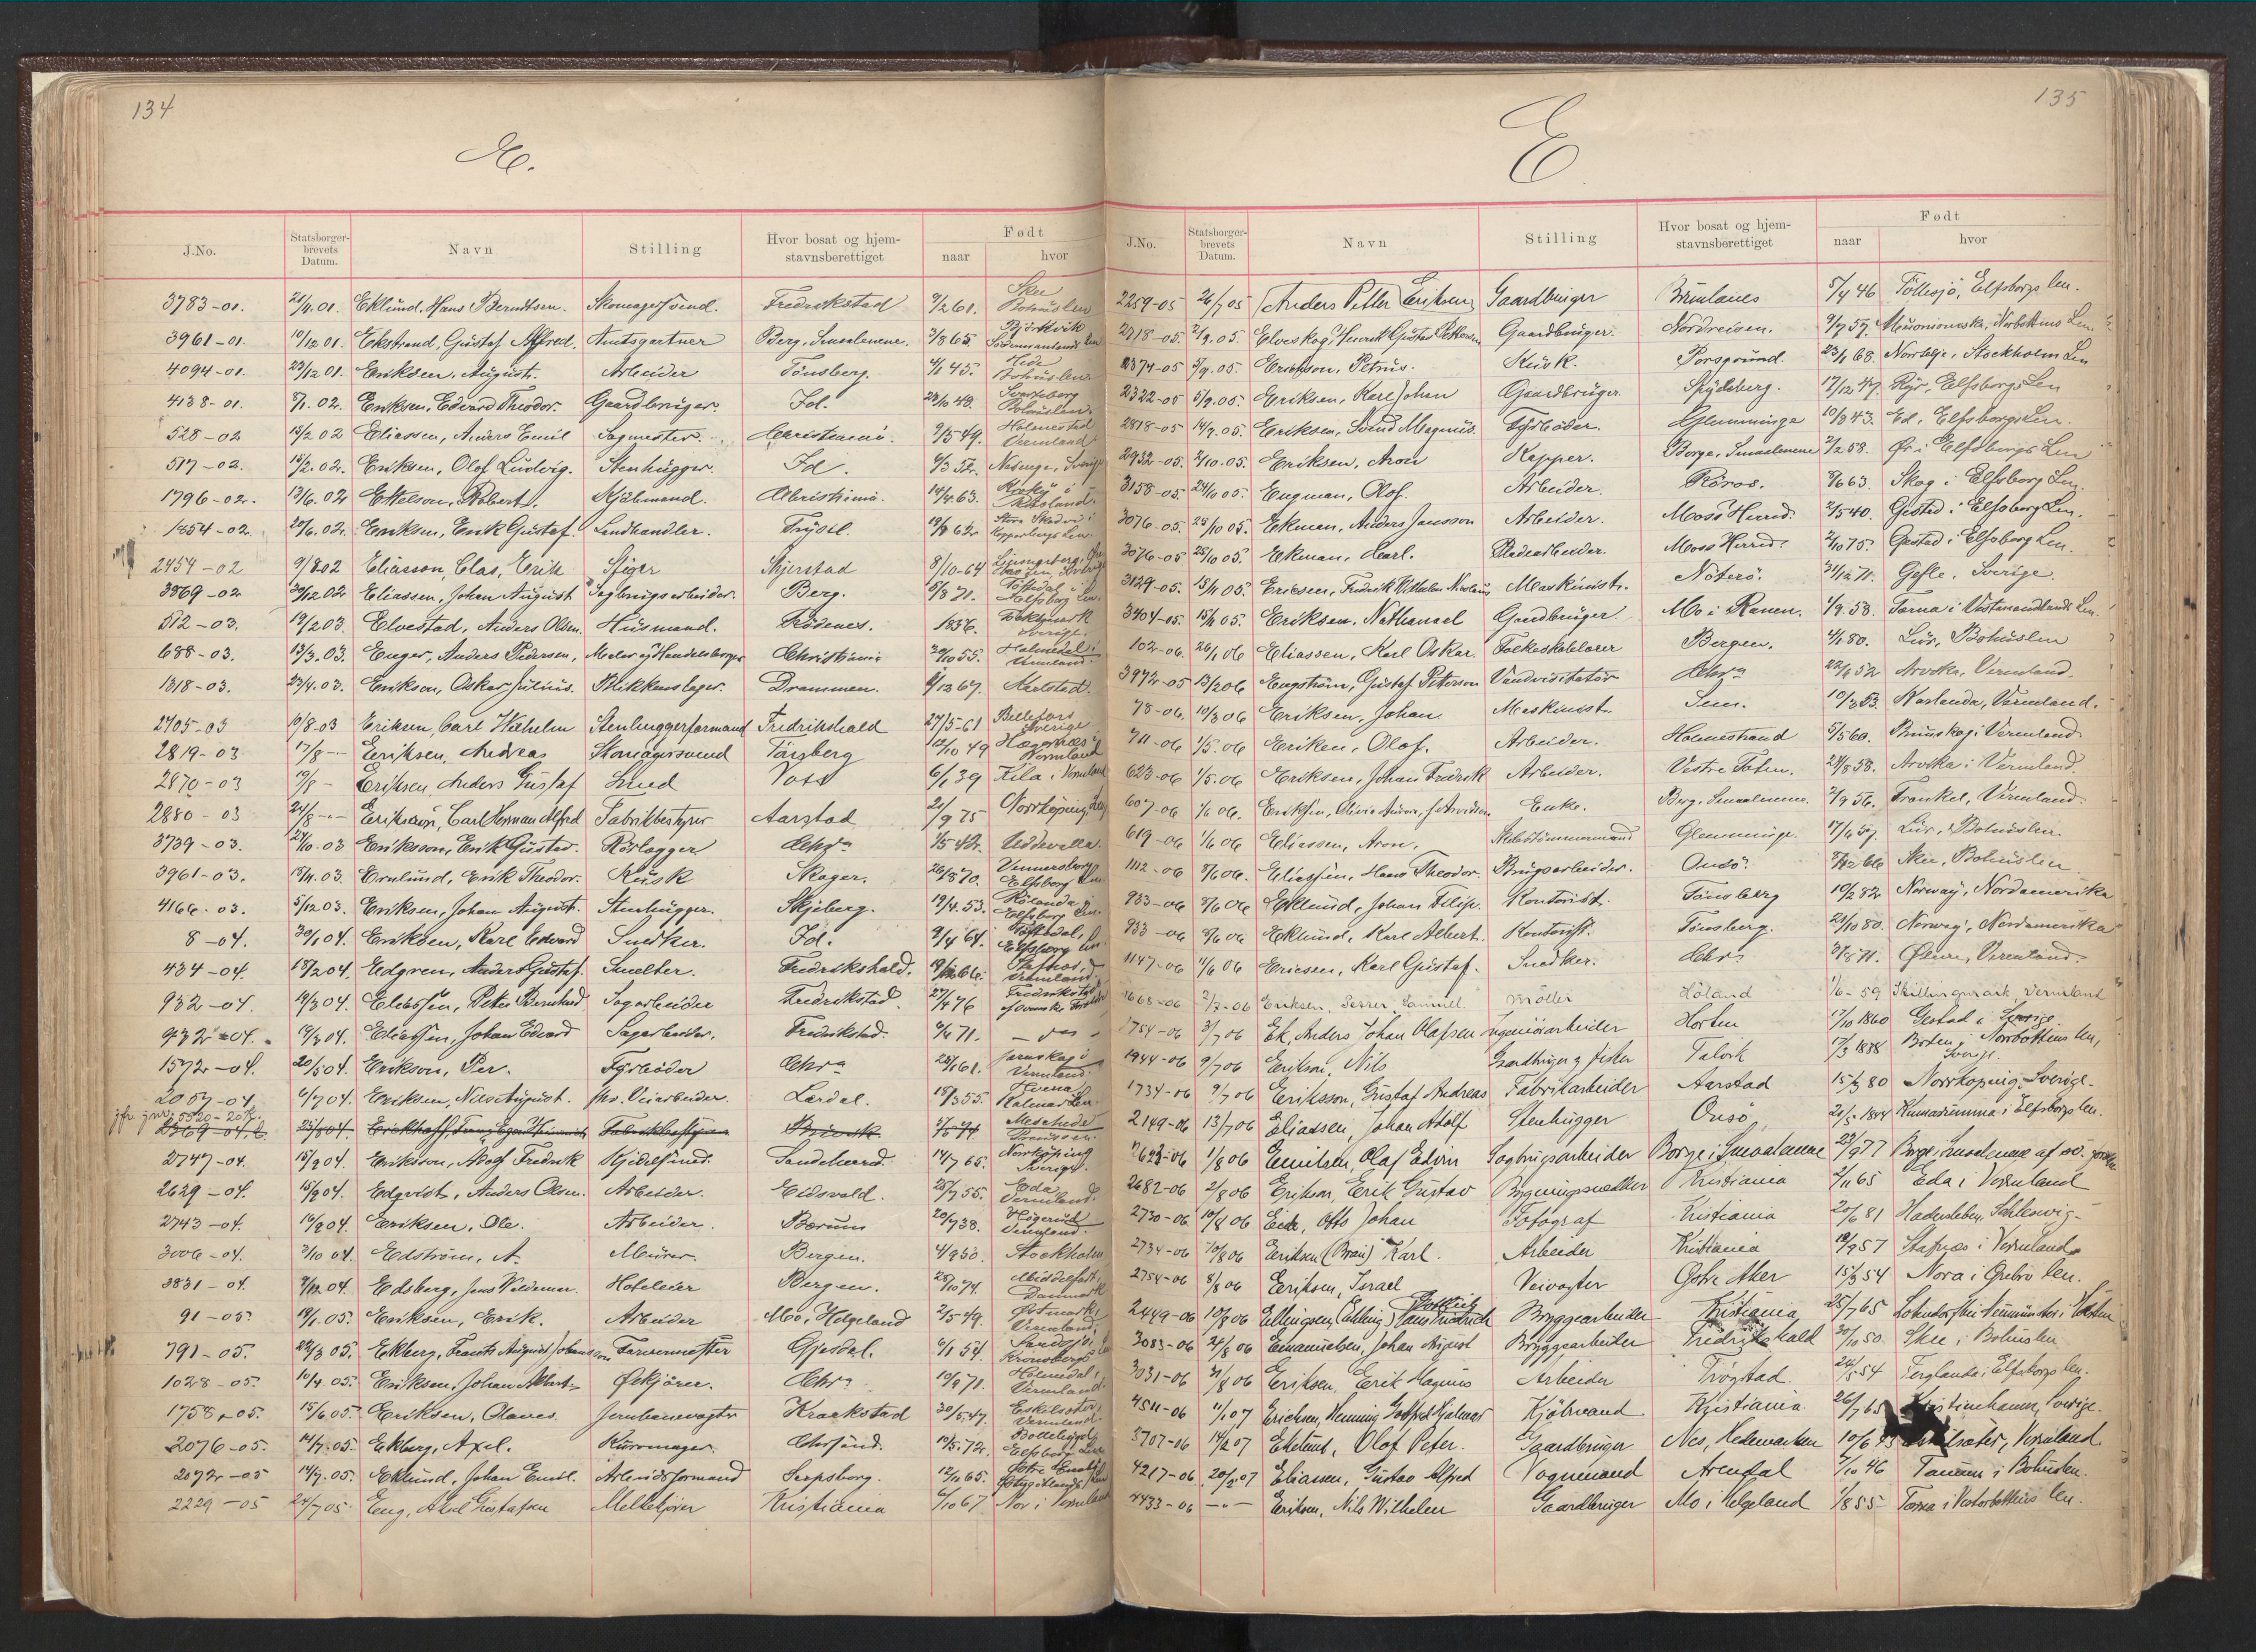 134
E.
J.No. Statsborger-brevets Datum. Navn Stilling Hvor bosat og hjem-stavnsberettiget Født naar hvor
3783-01. Eklund, Hans Berndtsen. Skomagersvend. Fredrikstad 9/2 61. Skee Bohuslen
3961-01. 10/12 01. Ekstrand, Gustaf Alfred. Amtsgartner Berg, Smaalenene. 3/8 65. Björkvik Södermanlands len
4094-01. 23/12 01. Eriksen, August. Arbeider Tönsberg. 4/1 45. Hede Bohuslen
4138-01. 8/1. 02. Eriksen, Edvard Theodor. Gaardbruger. Id. 23/10 48. Svarteborg Bohuslen.
528-02 15/2 02 Eliassen, Anders Emil Sagmester. Christiania. 9/5 49. Holmedal Vermland
517-02. 15/2. 02. Eriksen, Olof Ludvig. Stenhugger. Id. 6/3 52. Nasinge, Sverige
1796-02. 13/6. 02 Ettelson, Robert. Kjöbmand. Christiania. 14/4 63.
1854-02. 20/6. 02. Eriksen, Erik Gustaf. Lindhandler. Trysil. 19/8 62.
2454-02 9/8 02 Eliasson, Clas, Erik Stiger Skjerstad 8/10-64
3869-02 30/12 02 Eliassen, Johan August Sagbrugsarbeider. Berg. 5/8 71. Töftedal i Elfsborg len.
512-03. 19/2 03. Elvestad, Anders Olsen. Husmand. Rödenes. 1836. Sverige.
688-03. 13/3. 03. Enger, Anders Pedersen, Maler og Handelsborger Christiania 29/10 55. Holmedal i Vermland.
1318-03. 23/4. 03. Erikson, Oskar Julius. Blikkenslager. Drammen. 9/12 67. Karlstad.
2705-03 10/8-03 Eriksen, Carl Wilhelm Stenhuggerformand Fredrikshald 27/5-61 Sverige
2819-03 17/8 -"- Eeriksen, Andreas Skomagersvend Tönsberg 12/10 49 Vermland
2870-03 19/8 - Eriksen, Anders Gustaf Smed Voss 6/1 39 Kila i Vermland
2880-03 24/8 -"- Eriksson, Carl Herman Alfred Fabrikbestyrer Aarstad 21/9 75 Norrköping,
3739-03. 24/10. 03 Eriksson, Erik Gustav. Rörlægger. Chr.a 1/5 42. Uddevalla.
3961-03. 18/11. 03. Ernlund, Erik Theodor. Kusk Skoger. 26/8 70. Vennersborg Elfsborg len.
4166-03. 5/12 03. Eriksen, Johan August. Stenhugger. Skjeberg. 19/4. 53. Rölanda Elfsborg len.
8-04. 30/1 04. Eriksen, Karl Edvard Snedker. Id. 9/4 64. Töftedal, Elfsborg len.
434-04. 18/2 04. Edgren, Anders Gustaf. Smelter. Fredrikshald. 19/12 66. Vermland.
932-04. 19/3 04. Eliassen, Peter Bernhard Sagarbeider Fredrikstad. 27/4 76 Fredrikstad af svenske Forældre
932-04. 19/3 04. Eliassen, Johan Edvard Sagarbeider. Fredrikstad. 9/6 71. - do -
1572-04. 20/5 04. Erikson, Per. Fyrböder Chr.a 23/1 61. Jernskog i Vermland.
2057-04 6/7 04. Eriksen, Nils August. fhv. Veiarbeider. Lærdal. 18/3 55. Kalmar len.
2369-04. 23/8 04. Erichhoff, Fabrikbestyrer
2747-04. 15/9 04. Eriksson, Adolf Fredrik Kjedelsmed. Sandeherred. 14/7 65. Norrköping Sverige.
2629-04. 15/9 04. Edqvist, Anders Olsen. Arbeider. Eidsvold. 25/7 55. Eda, Vermland.
2743-04. 16/9 04. Eriksen, Ole. Arbeider. Bærum 20/7 38. Högerud Vermland.
3006-04. 3/10 04. Edström, A. Murer. Bergen. 4/9 50. Stockholm
3831-04. 9/12 04. Edsberg, Jens Valdemar. Hoteleier Bergen. 28/10 74. Middelfart, Danmark
91-05. 19/1. 05. Eriksen, Erik. Arbeider Moo, Helgeland 2/5 49. Östmark, Vermland.
791-05. 22/3 05. Ekberg, Frants August Johansson Farvermester Gjesdal. 6/1 54. Kronobergs
1028-05. 10/4. 05. Eriksen, Johan Albert. Öskjörer. Chr.a 10/9 71. Holmedal, Vermland.
1758-05. 15/6. 05. Eriksen, Olaves. Jernbanevogter Kraakstad 30/5. 47. Eskilsäter, Vermland.
2076-05. 14/7. 05. Ekberg, Axel. Kurvmager. Chr.sund. 19/5. 72. Bollebygd, Elfsborg Len
2072-05 14/7. 05. Eklund, Johan Emil. Arbeidsformand Sarpsborg. 12/11 65. Östergötlands len
2229-05 24/7 05. Eng, Axel Gustafsen Melkekjører Kristiania 6/10 67 Nor i Vermland
135
E
J.No. Statsborger-brevets Datum. Navn Stilling Hvor bosat og hjem-stavnsberettiget Født naar hvor
2259-05 26/7 05 Anders Petter Eriksen Gaardbruger Brunlanes 5/4 46 Töllesjö, Elfsborgs len.
2718-05. 2/9. 05. Elveskog, Henrik Gustav Pettersen Gaardbruger. Nordreisen. 9/7 57. Muonioniska, Norbottens Len
2374-05 5/9. 05. Erichson, Petrus. Kusk. Porsgrund. 23/1 68. Norrtelje, Stockholm Len
2322-05 5/9. 05. Eriksen, Karl Johan Gaardbruger. Spydeberg. 17/12 47. Ryr, Elfsborgs Len
2818-05 14/9. 05. Eriksen, Svend Magnus. Fyrböder. Glemminge 10/3 43. Ed, Elfsborgs Len.
2932-05. 2/10. 05. Eriksen, Aron Kapper. Borge, Smaalenene 1/2 58. Ör i Elfsborgs Len
3158-05. 24/10 05. Engman, Olof. Arbeider. Röros. 8/6 63. Skog i Elfsborg Len.
3076-05. 25/10 05. Ekman, Anders Jansson Arbeider. Moss Herred. 2/5 40. Gestad i Elfsborg Len.
3076-05 25/10 05. Ekman, Carl. Pladearbeider. Moss Herred. 2/10 75. Gestad i Elfsborg Len.
3129-05. 15/11 05. Ericsen, Fredrik Vilhelm Nicolaus Maskinist. Nöterö. 31/12 71. Gefle, Sverige.
3404-05. 15/11 05. Eriksen, Nathanael Gaardbruger. Mo i Ranen. 1/9. 53. Tärna i Vestmanlands Len.
102-06. 26/1 06 Eliassen, Karl Oskar. Folkeskolelærer Bergen. 4/1 80. Lur, Bohuslen
3972-05 13/2 06 Engström, Gustaf Petterson Vandvisitatör Chr.a 22/6 52 Arvika, Vermland.
78-06. 10/3 06 Eriksen, Johan Maskinist. Sem. 10/3 53. Karlanda, Vermland.
711-06 1/5. 06 Eriken, Olof. Arbeider. Holmestrand 5/5 60. Brunskog i Vermland
623-06 1/5. 06 Eriksen, Johan Fredrik Arbeider. Vestre Toten. 24/8 58. Arvika i Vermland.
607-06 1/6 06. Eriksen, Olivia Aurora, f. Arvidsen Enke. Berg, Smaalenene. 2/9 56. Trankil, Vermland.
619-06 1/6 06 Eliassen, Aron. Skibstömmermand Glemminge. 17/4 57. Lur, Bohuslen
1112-06 8/6 06. Eliassen, Hans Theodor. Brugsarbeider. Onsö. 8/12 66 Skee, Bohuslen
933-06 8/6 06 Eklund, Johan Filip. Kontorist. Tönsberg 10/2 82 Norway, Nordamerika
933-06 8/6 06 Eklund, Karl Albert. Kontorist. Tönsberg. 21/10 80. Norway, Nordamerika
1147-06 11/6 06 Ericsen, Karl Gustaf. Snedker. Chr.a 31/8 71. Ölme, Vermland.
1668-06 2/7-06 Eriksen, Petter Samuel. Møller Höland 1/6-59 Skillingmark, Vermland
1754-06 3/7 06 Ek, Anders Johan Olafsen Ingeniörarbeider Horten 17/10 1860 Gestad i Sverige
1944-06 9/7 06 Erikson, Nils Gaardbruger & fisker Talvik 17/3 1838 Boden i Norbottens len, Sverige.
1734-06 9/7 06 Eriksson, Gustaf Andreas Fabrikarbeider Aarstad 15/3 80 Norrköping, Sverige.
2149-06 13/7 06 Eliassen, Johan Adolf Stenhugger Onsö 21/5 1844 i Elfsborgs len.
2623-06 1/8 06 Emilsen, Olaf Edvin Sagbrugsarbeider Borge i Smaalenene 23/9 77 Borge i Smaalenene af sv. forældre
2682-06 2/8 06 Erikson, Erik Gustav Bygningssnekker Kristiania 2/11 65 Eda i Vermland
2730-06 10/8 06 Eich, Otto Johan Fotograf Kristiania 25/6 81 Hadersleben, Schleswig-
2734-06 10/8 06 Eeriksen (Brain) Karl. Arbeider Kristiania 19/9 57 Stafnæs i Vermland
2754-06 8/8 06 Eeriksen, Israel Veivogter Østre Aker 15/3 54 Nora i Ørebro len.
2449-06 10/8 06 Ellingsen (Ehling) Hans Friedrich Bryggearbeider Kristiania 25/7 65 Neumünster i Holsten
3083-06 24/8 06 Emanuelsen, Johan August Bryggearbeider Fredrikshald 30/11 50. Skee i Bohuslen
3031-06 31/8 06 Eriksen, Erik Magnus Arbeider Trøgstad. 24/5 54 Färglanda i Elfsborgs len.
4511-06 11/1 07 Erichsen, Henning Gottfred Hjalmar Kjöbmand Kristiania 26/7 65 Kristinehamn, Sverige.
3707-06 14/2 07 Ekelund, Olof Peter. Gaardbruger Nes, Hedemarken 10/6 Eskilsäter, Vermland
4217-06 20/2 07 Eliassen, Gustav Alfred Vognmand Arendal 7/10 46 Tanum i Bohuslen.
4433-06 -"- Eriksen, Nils Wilhelm Gaardbruger Mo i Helgeland 1/8 55 Tärna i Vesterbottens len.